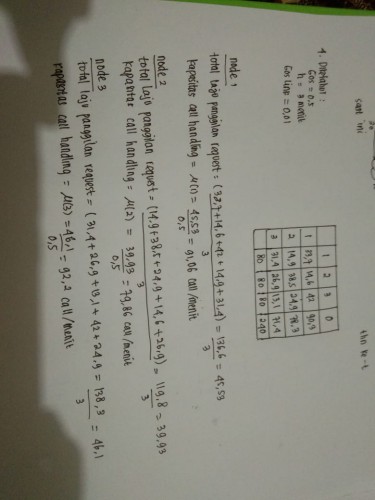 saat ini
thn ke-t
4. Diketahui :
Gos = 0.5
h = 3 menit
Gos line = 0,01
1 2 3 O
1 33,7 14,6 42 90,3
2 14,9 38,5 24,9 78,3
3 31,4 26,9 13,1 71,4
80 80 80 240
node 1
total laju panggilan request = (33,7+14,6+42+14,9+31,4) = 136,6 = 45,53
3 3
kapasitas call handling = μ(1) = 45,53 = 91,06 call/menit
0,5
node 2
total laju panggilan request = (14,9+38,5+24,9+14,6+26,9) = 119,8 = 39,93
3 3
kapasitas call handling = μ(2) = 39,93 = 79,86 call/menit
0,5
node 3
total laju panggilan request = (31,4+26,9+13,1+42+24,9 = 138,3 = 46,1
3
kapasitas call handling = μ(3) = 46,1 = 92,2 call/menit
0,5